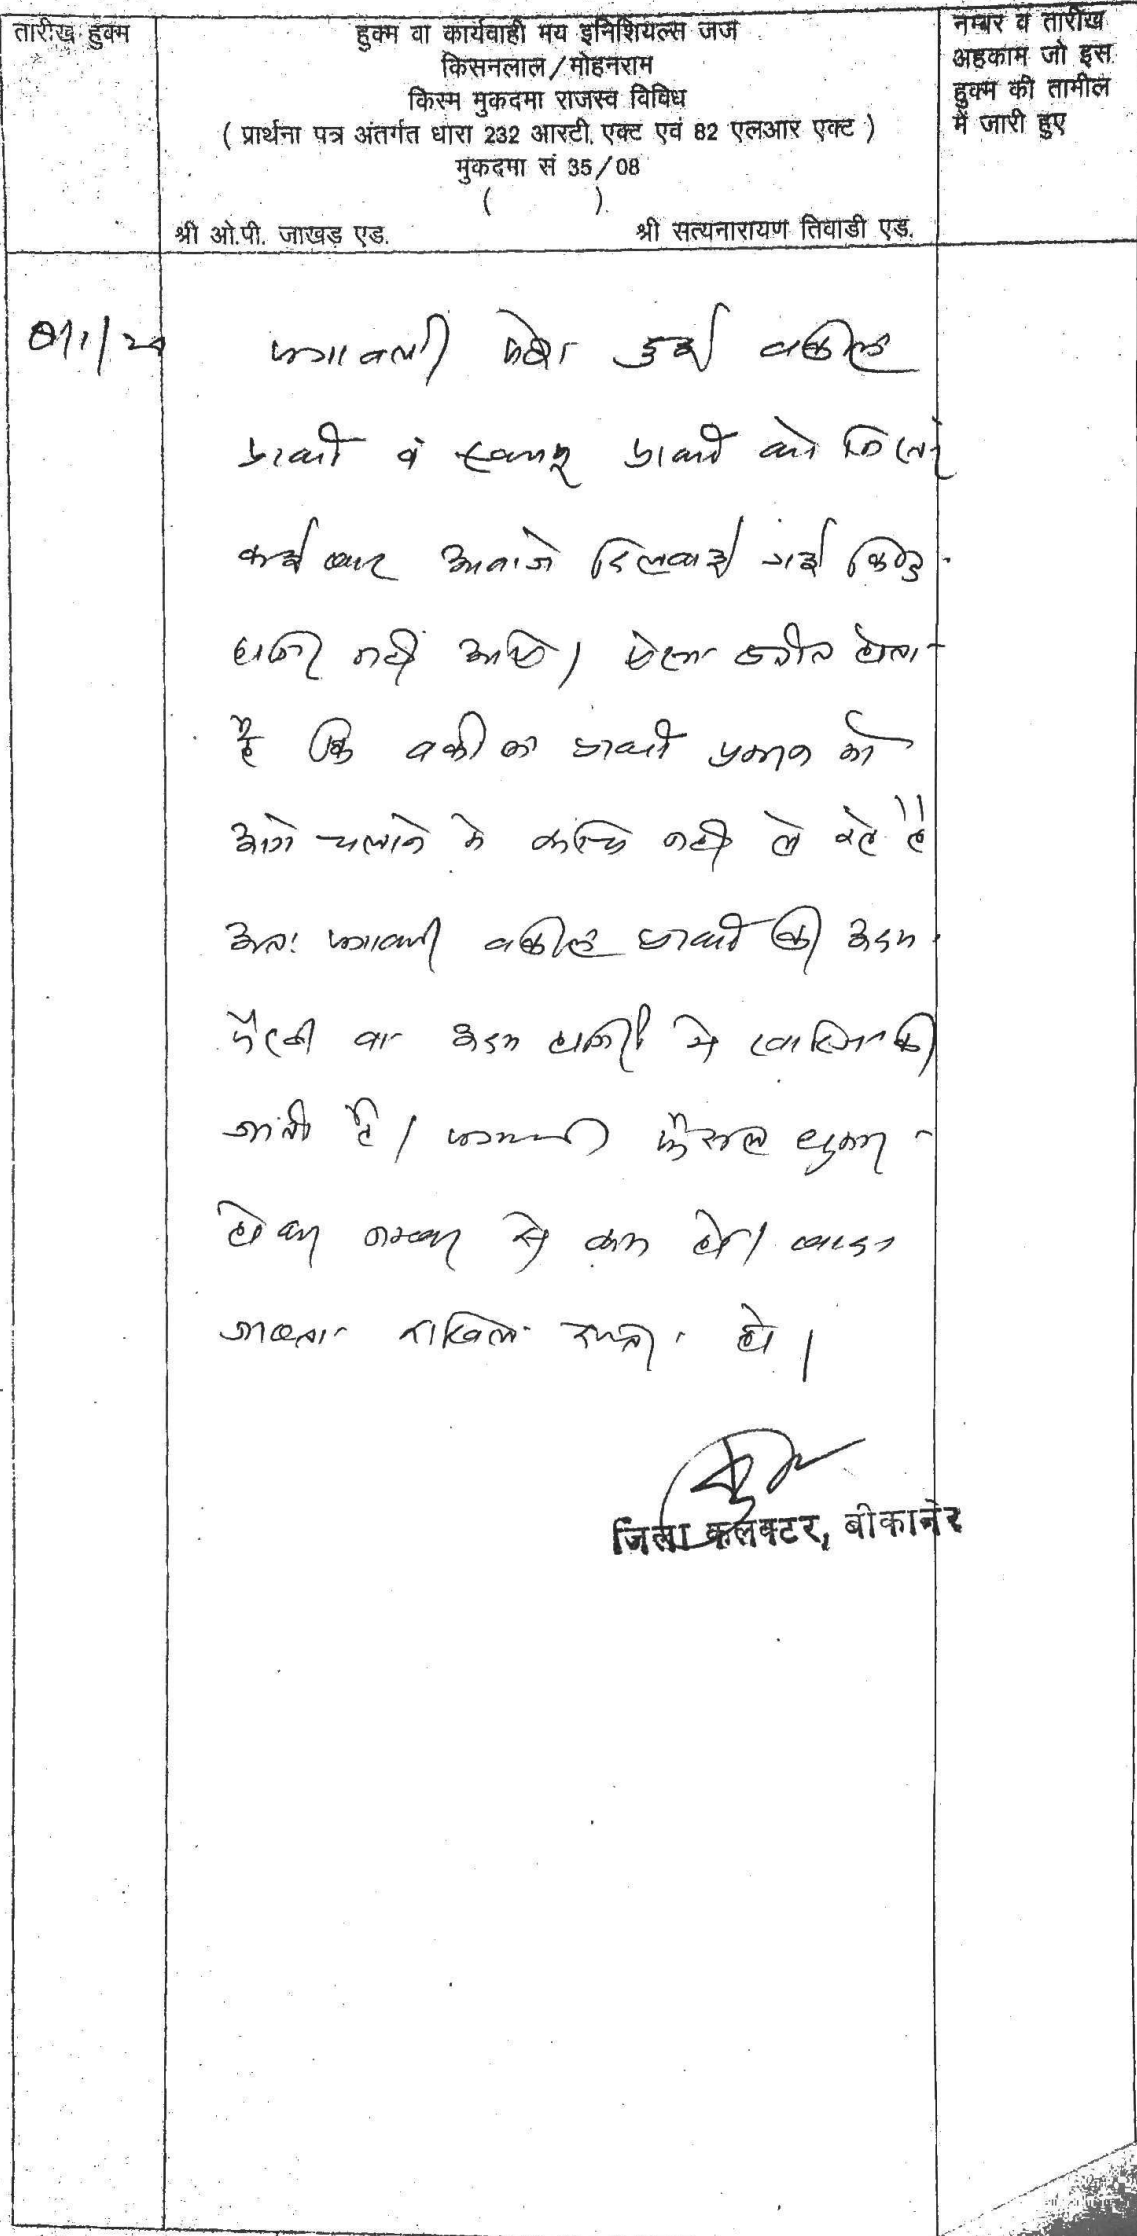 तारीख हुक्म
हुक्म वा कार्यवाही मय इनिशियल्स जज
किसनलाल/मोहनराम
किस्म मुकदमा राजस्व विविध
( प्रार्थना पत्र अंतर्गत धारा 232 आरटी. एक्ट एवं 82 एलआर एक्ट )
मुकदमा सं 35/08
( )
श्री ओ.पी. जाखड़ एड. श्री सत्यनारायण तिवाडी एड.
नम्बर व तारीख
अहकाम जो इस
हुक्म की तामील
में जारी हुए
पत्रावली पेश हुई वकील
प्रार्थी व स्वयं प्रार्थी को
कई बार आवाजे दिलवाई गई किन्तु
हाजिर नहीं आये। ऐसा प्रतीत होता
है कि वकील प्रार्थी प्रकरण को
आगे चलाने मे रूचि नही ले रहे है
अतः पत्रावली वकील प्रार्थी की अदम
पैरवी वा अदम हाजिरी मे खारिज की
जाती है। पत्रावली फैसल शुमार
होकर नम्बर से कम हो। बाद
जाब्ता दाखिल दफ्तर हो।
जिला कलक्टर, बीकानेर